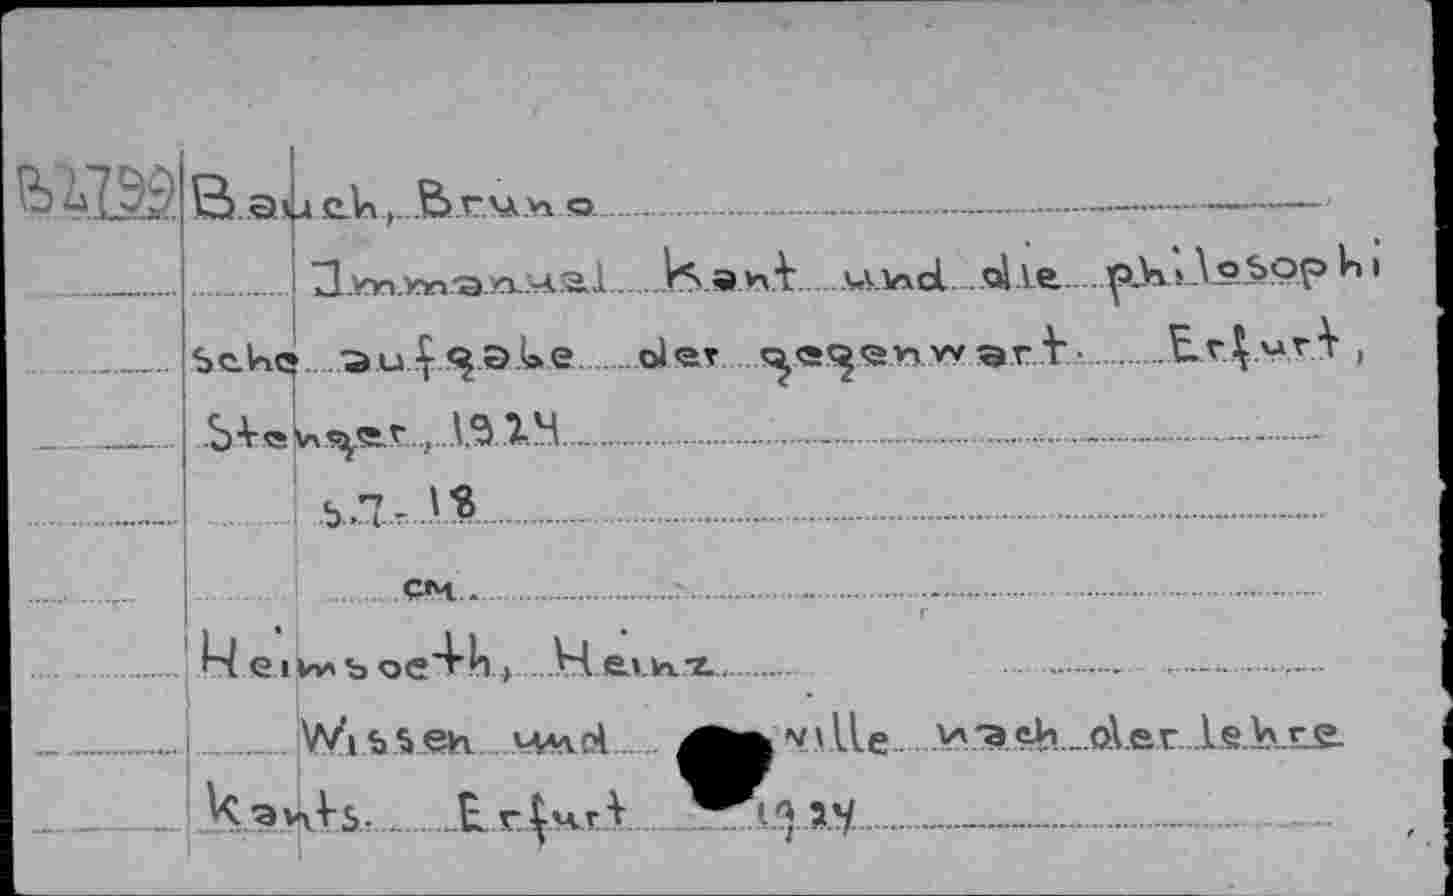 B2799 Bauch, Bruno
Immanual Kant und die philosophi
sche aufgabe der gegenwart. Erfurt,
Stenger, 1924
s.7-18
см.
Heimsoeth, Heinz.
Wissen und wille nach der lehre
Kants. Erfurt 1924